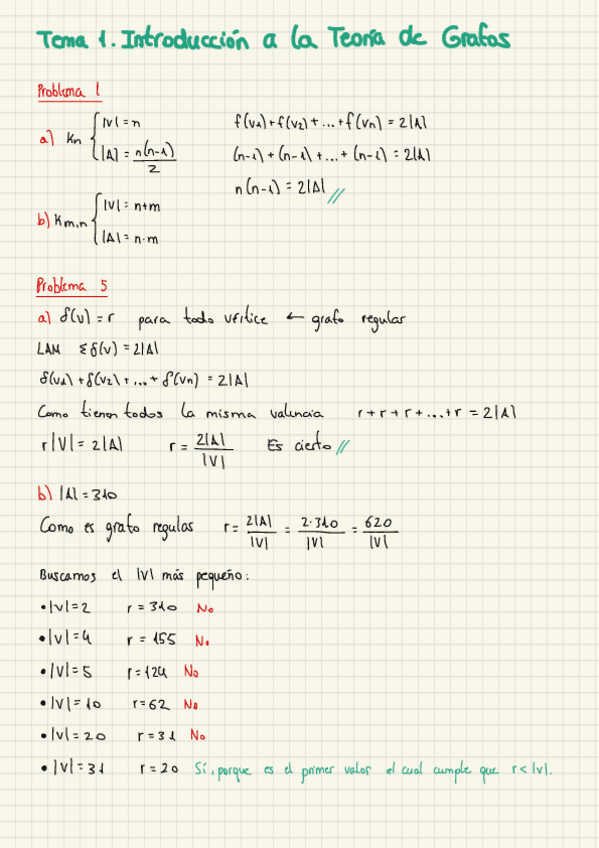 Tema 1. Introducción a la Teoría de Grafos
Problema 1
a) Kn { |V| = n
|A| = n(n-1)/2
f(v1)+f(v2)+...+f(vn) = 2|A|
(n-1)+(n-1)+...+(n-1) = 2|A|
n(n-1) = 2|A| //
b) Km,n { |V| = n+m
|A| = n·m
Problema 5
a) δ(v) = r para todo vértice ← grafo regular
LAM Σδ(v) = 2|A|
δ(v1)+δ(v2)+...+δ(vn) = 2|A|
Como tienen todos la misma valencia r+r+r+...+r = 2|A|
r|V| = 2|A| r = 2|A|/|V| Es cierto //
b) |A| = 310
Como es grafo regulas r = 2|A|/|V| = 2·310/|V| = 620/|V|
Buscamos el |V| más pequeño:
• |V| = 2 r = 310 No
• |V| = 4 r = 155 No
• |V| = 5 r = 124 No
• |V| = 10 r = 62 No
• |V| = 20 r = 31 No
• |V| = 31 r = 20 Sí, porque es el primer valor el cual cumple que r < |V|.